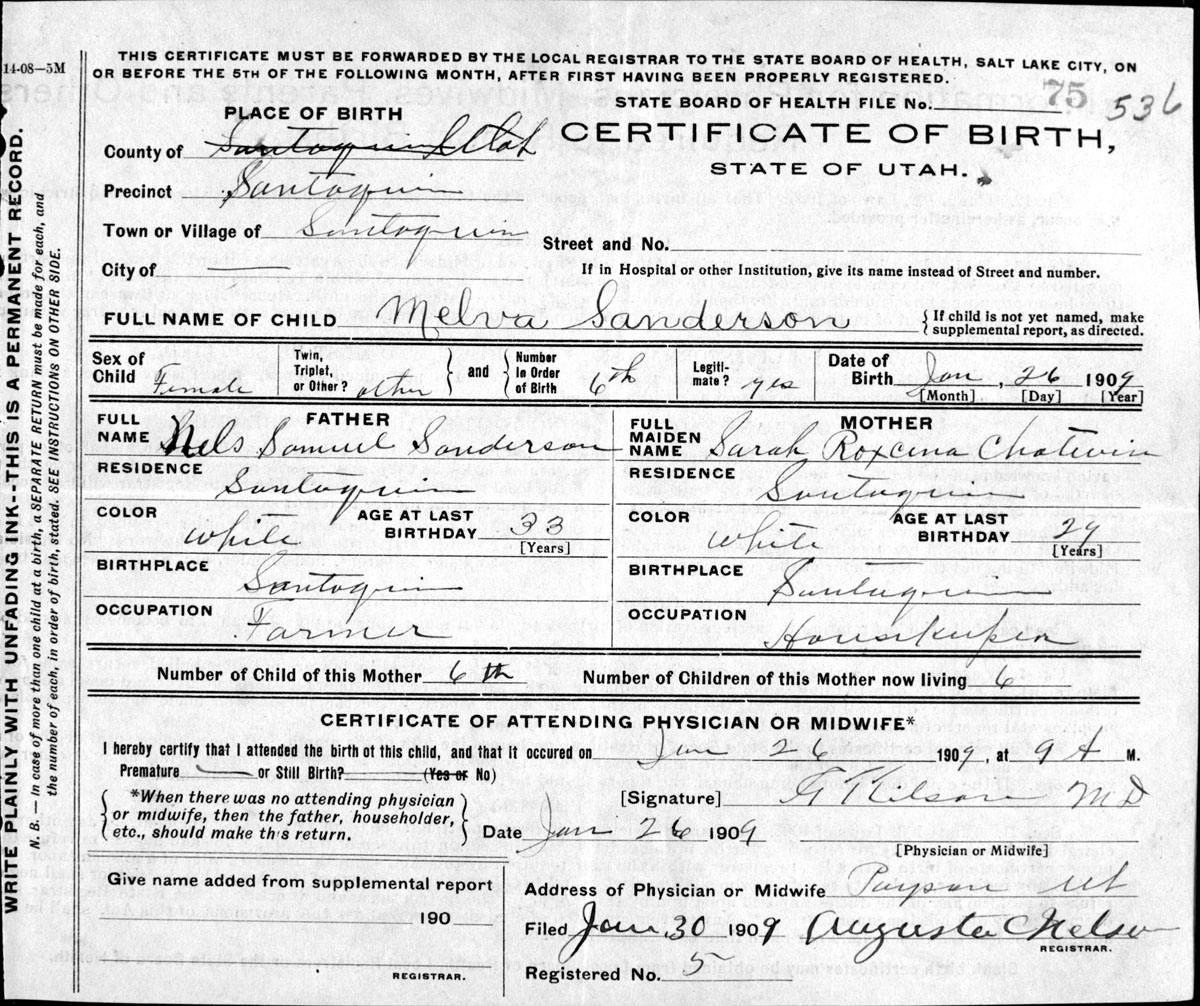 14-08—5M
THIS CERTIFICATE MUST BE FORWARDED BY THE LOCAL REGISTRAR TO THE STATE BOARD OF HEALTH, SALT LAKE CITY, ON
OR BEFORE THE 5TH OF THE FOLLOWING MONTH, AFTER FIRST HAVING BEEN PROPERLY REGISTERED.
STATE BOARD OF HEALTH FILE No. 75 536
PLACE OF BIRTH
CERTIFICATE OF BIRTH,
STATE OF UTAH.
County of Santaquin Utah
Precinct Santaquin
Town or Village of Santaquin
Street and No.
City of —
If in Hospital or other Institution, give its name instead of Street and number.
FULL NAME OF CHILD Melva Sanderson
If child is not yet named, make
supplemental report, as directed.
Sex of Child Female
Twin, Triplet, or Other? other
and
Number In Order of Birth 6th
Legiti-mate? yes
Date of Birth Jan, 26 1909
[Month] [Day] [Year]
FATHER
FULL NAME Nels Samuel Sanderson
MOTHER
FULL MAIDEN NAME Sarah Roxcina Chatwin
RESIDENCE Santaquin
RESIDENCE Santaquin
COLOR White
AGE AT LAST BIRTHDAY 33
[Years]
COLOR White
AGE AT LAST BIRTHDAY 29
[Years]
BIRTHPLACE Santaquin
BIRTHPLACE Santaquin
OCCUPATION Farmer
OCCUPATION Housekeeper
Number of Child of this Mother 6th
Number of Children of this Mother now living 6
CERTIFICATE OF ATTENDING PHYSICIAN OR MIDWIFE*
I hereby certify that I attended the birth of this child, and that it occured on Jan 26 1909, at 9 A M.
Premature — or Still Birth? — (Yes or No)
*When there was no attending physician
or midwife, then the father, householder,
etc., should make this return.
[Signature] MD
Date Jan 26 1909
[Physician or Midwife]
Give name added from supplemental report
190
REGISTRAR.
Address of Physician or Midwife Payson Ut
Filed Jan 30 1909 Augusta Nelson
REGISTRAR.
Registered No. 5
WRITE PLAINLY WITH UNFADING INK--THIS IS A PERMANENT RECORD.
N. B.— In case of more than one child at a birth, a SEPARATE RETURN must be made for each, and
the number of each, in order of birth, stated. SEE INSTRUCTIONS ON OTHER SIDE.